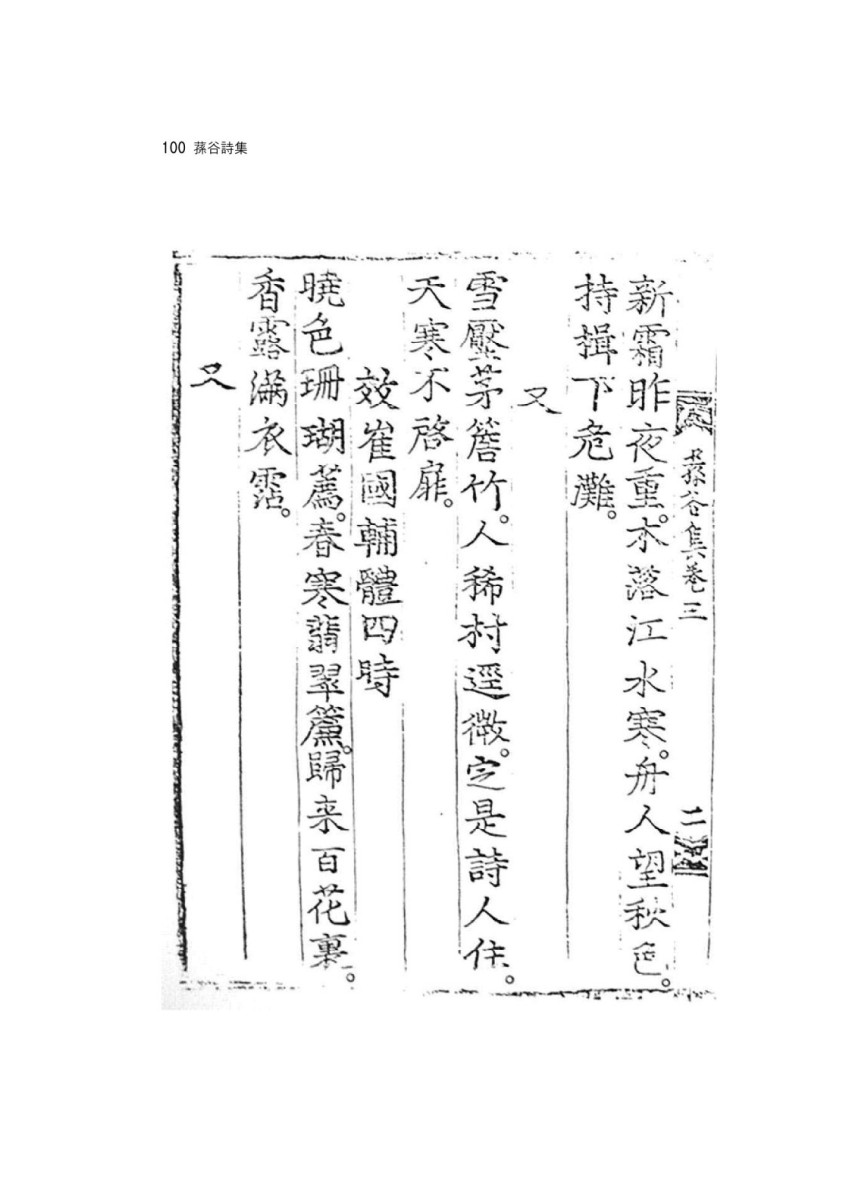 100 蓀谷詩集
蓀谷集卷三 二
新霜昨夜重。木落江水寒。舟人望秋色。
持揖下危灘。
又
雪壓茅簷竹。人稀村逕微。定是詩人住。
天寒不啓扉。
效崔國輔體四時
曉色珊瑚薦。春寒翡翠簾。歸来百花裏。
香露滿衣霑。
又